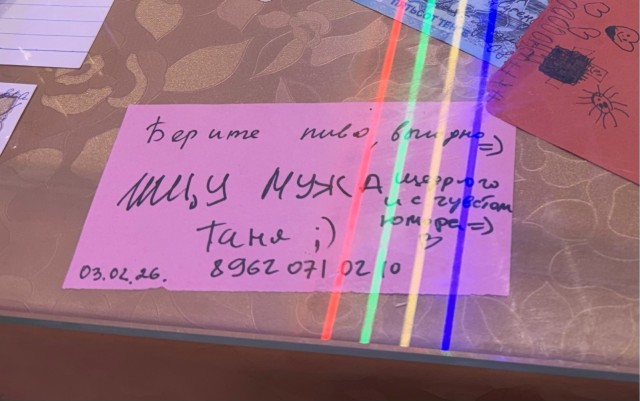 Берите пиво, выгодно =)
ИЩУ МУЖА щедрого
и с чувством
юмора =)
Таня ;)
03.02.26. 8962 071 02 10